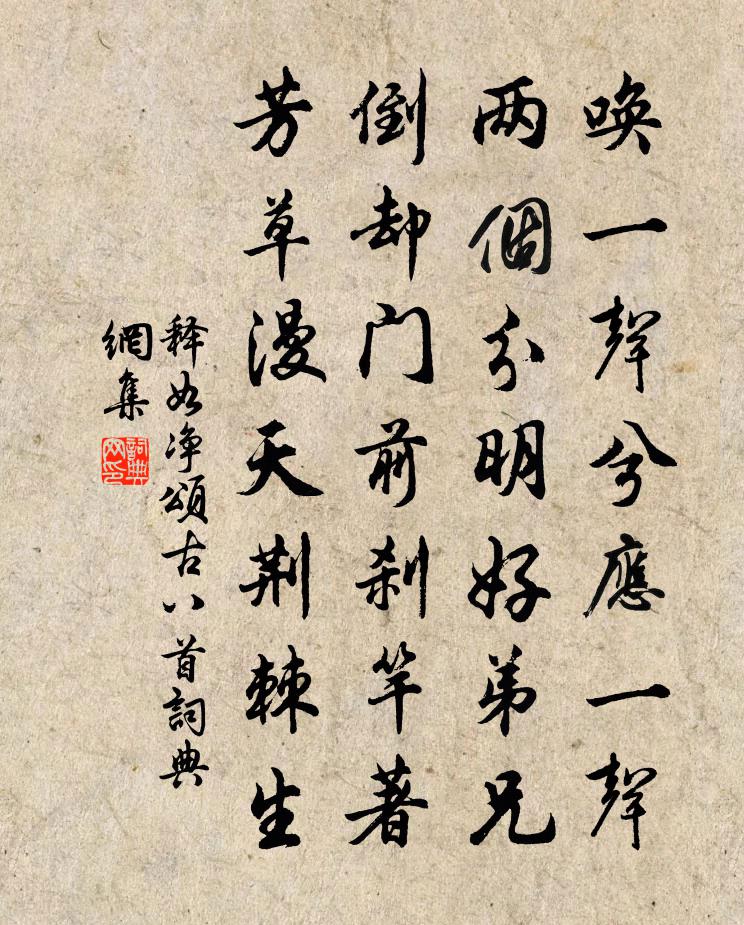 唤一聲兮應一聲
两個分明好弟兄
倒却门前刹竿著
芳草漫天荆棘生
释如净頌古八首詞典
網集
詞典
网印